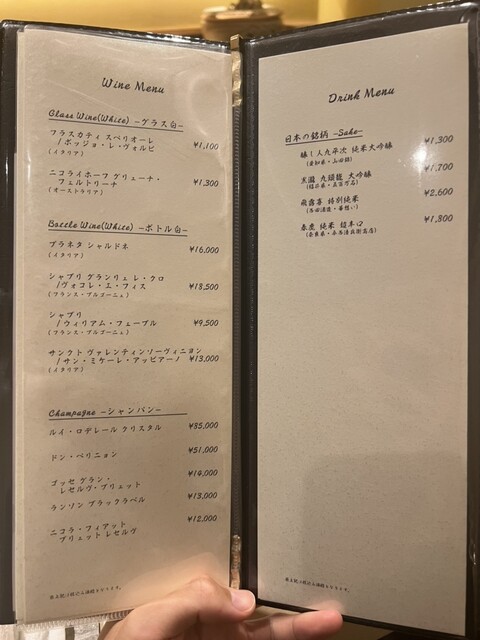 Wine Menu
Glass Wine(White) -グラス白-
フラスカティ スペリオーレ
/ポッジョ・レ・ヴォルピ ¥1,100
(イタリア)
ニコライホーフ グリューナ・
フェルトリーナ ¥1,300
(オーストラリア)
Bottle Wine(White) -ボトル白-
プラネタ シャルドネ ¥16,000
(イタリア)
シャブリ グランリュ レ・クロ
/ヴォコレ・エ・フィス ¥18,500
(フランス・ブルゴーニュ)
シャブリ
/ウィリアム・フェーブル ¥9,500
(フランス・ブルゴーニュ)
サンクト ヴァレンティンソーヴィニヨン
/サン・ミケーレ・アッピアーノ ¥13,000
(イタリア)
Champagne -シャンパン-
ルイ・ロデレール クリスタル ¥85,000
ドン・ペリニョン ¥51,000
ゴッセ グラン・
レセルヴ・ブリュット ¥14,000
ランソン ブラックラベル ¥13,000
ニコラ・フィアット
ブリュット レセルヴ ¥12,000
Drink Menu
日本の銘柄 -Sake-
醸し人九平次 純米大吟醸 ¥1,300
(愛知県・山田錦)
黒龍 九頭龍 大吟醸 ¥1,700
(福井県・五百万石)
飛露喜 特別純米 ¥2,600
春鹿 純米 超辛口 ¥1,800